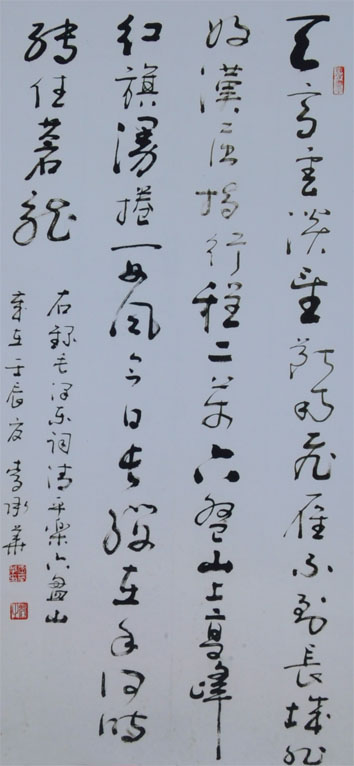 天高雲淡望斷南飛雁不到長城非
好漢屈指行程二萬六盤山上高峰
红旗漫捲西風今日長纓在手何時
縛住蒼龍
右錄毛澤東詞清平樂六盤山
歲在壬辰夏